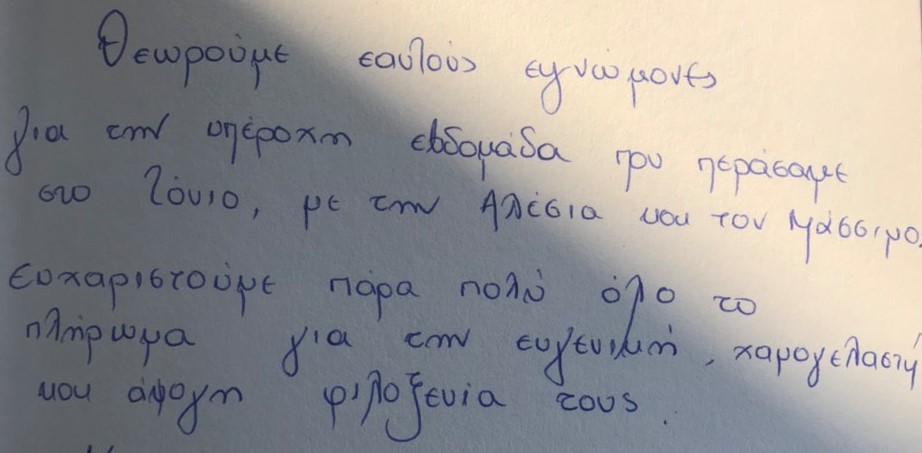 Θεωρούμε εαυτούς εγνώμονες
για την υπέροχη εβδομάδα που περάσαμε
στο Ιόνιο, με την Αλέσια και τον Μάσσιμο.
Ευχαριστούμε πάρα πολύ όλο το
πλήρωμα για την ευγενική, χαμογελαστή
και άψογη φιλοξενία τους.